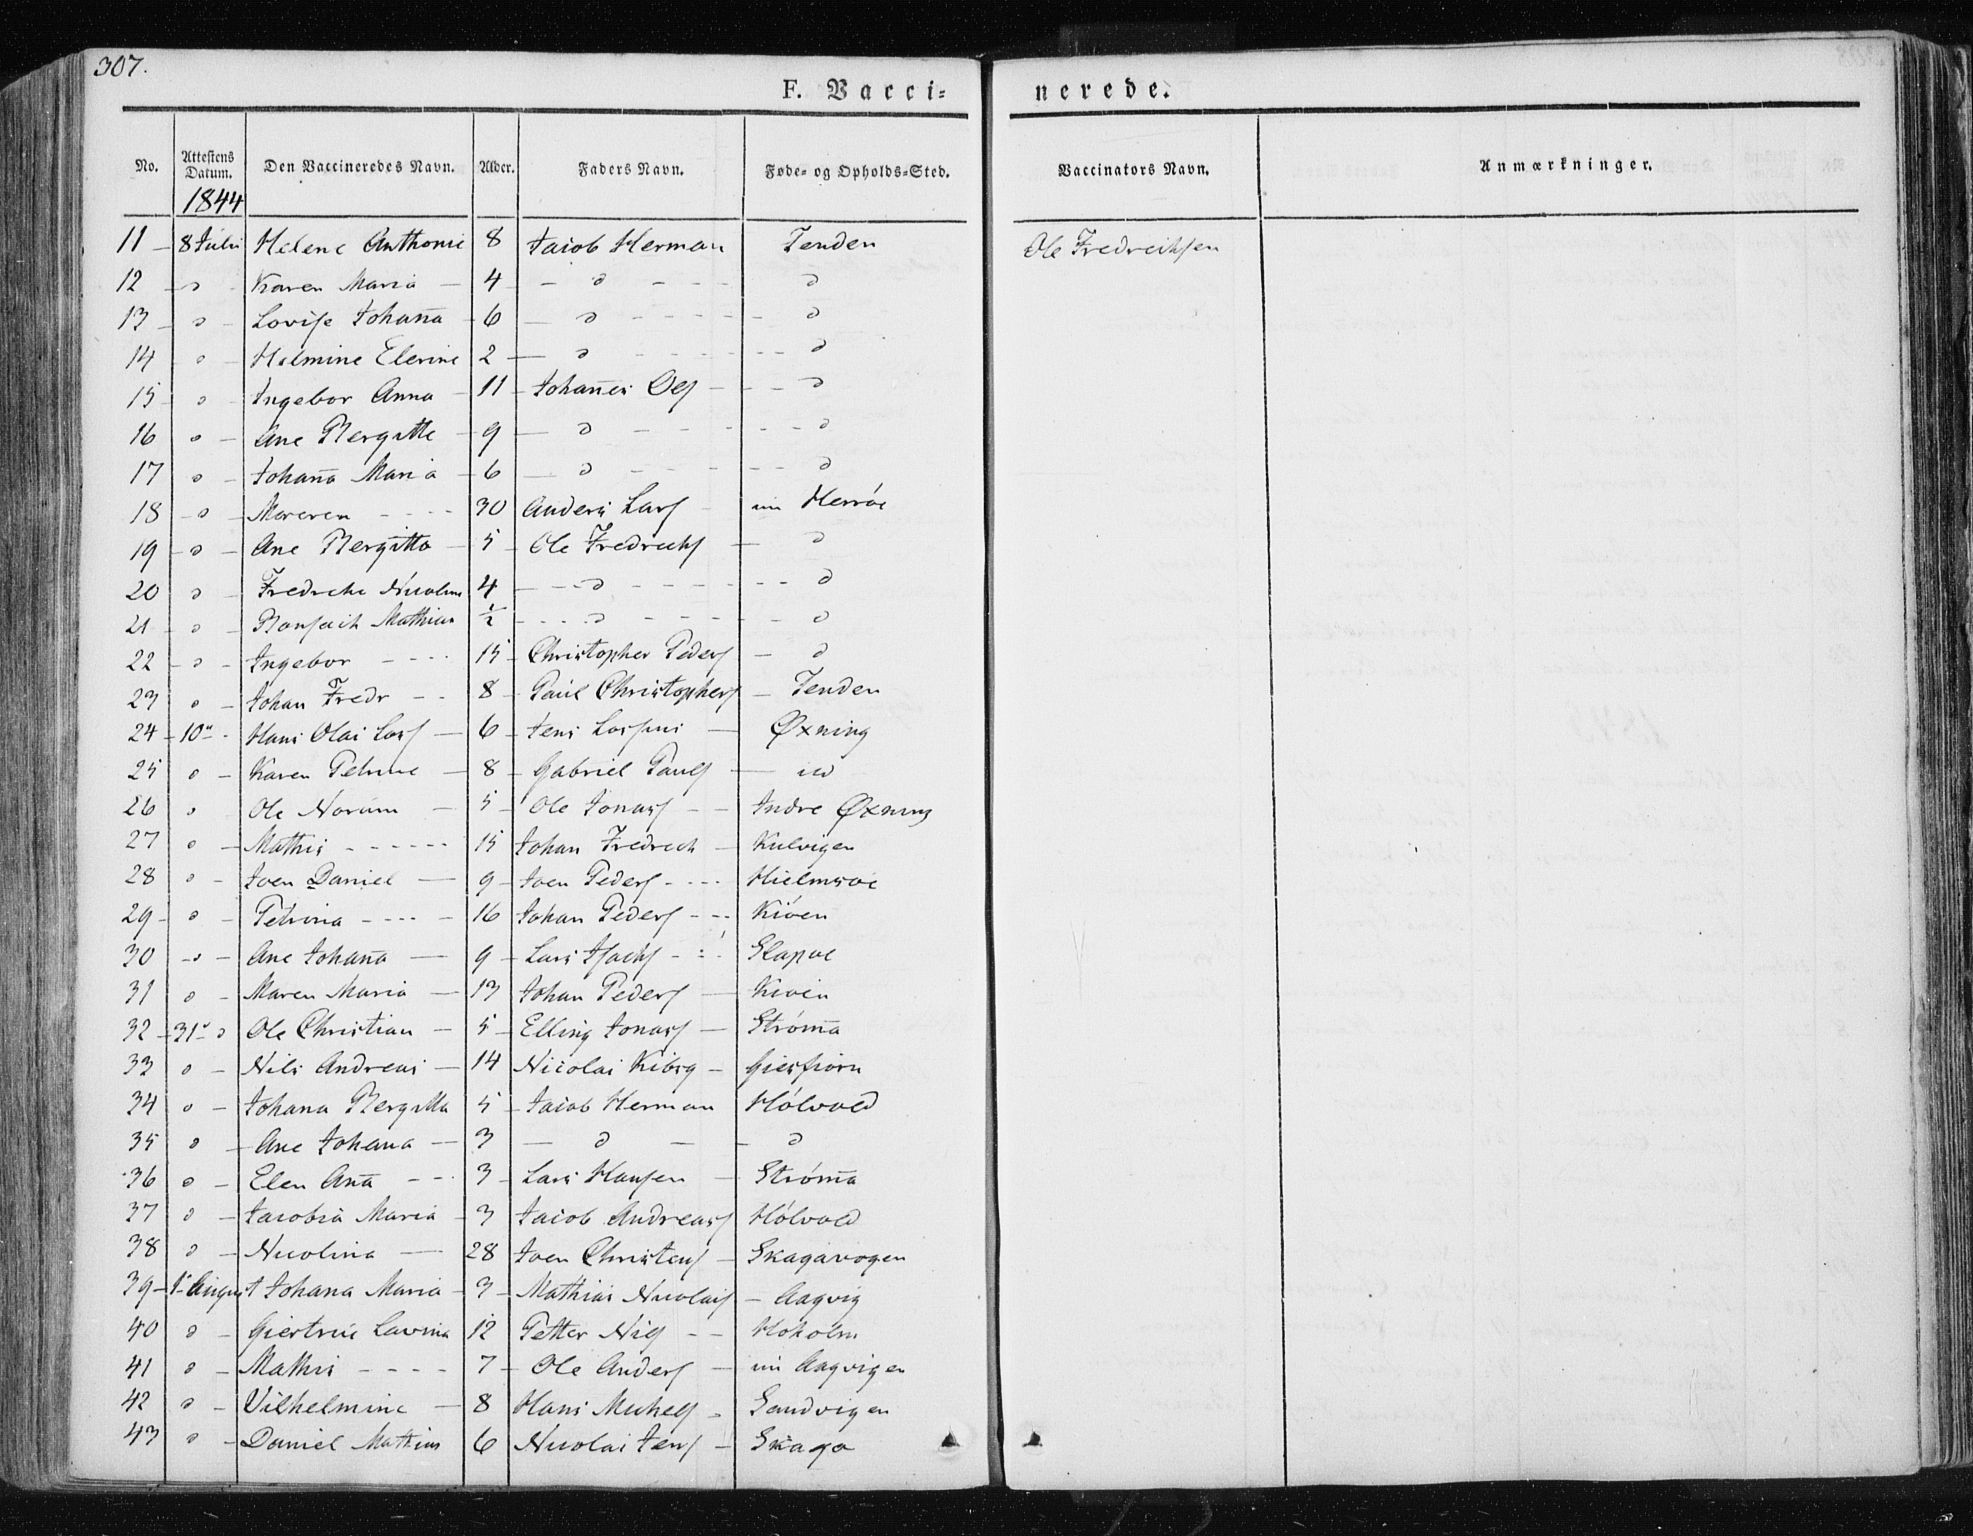 307.
F. Vacci=
nerede.
No. Attestens Datum. Den Vaccineredes Navn. Alder. Faders Navn. Føde= og Opholds=Sted. Vaccinators Navn. Anmærkninger.
1844
11 – 8 Juli Helene Anthonie 8 Jacob Herman Tenden Ole Fredrecksen
12 – " – Karen Maria – 4 – " – – – "
13 – " – Lovise Johan̄a – 6 – " – – – – – "
14 – " – Helmine Elerine 2 – " – – – – – "
15 – " – Ingebor Anna – 11 – Johan̄es Ols – – – "
16 " – Ane Bergitte – 9 – " – – – – – "
17 " – Johan̄a Maria – 6 – " – – – – – "
18 – " – Mareren – – – – 30 Anders Lars – im Herröe
19 – " – Ane Bergitta – 5 – Ole Fredrecks – "
20 " – Fredreke Nicoline 4 – – – " – – – – – – "
21 – " – Mathias ½ – – – – " – – – – – "
22 – " – Ingebor – – – – 15 – Christopher Peders – "
23 " – Johan Fredr – – 8 – Paul Christophers – Tenden
24 – 10" – Hans Olai Lars – 6 – Jens – Øxning
25 " – Karen Petrine – 8 – Gabriel Pauls – id
26 " Ole Norum – 5 – Ole Jonas – – Indre Øxning
27 " – Mathis – – – – – – 15 Johan Fredrech – Kulvigen
28 " – Joen Daniel – 9 – Joen Peders – – – – Hielmsoe
29 – " – Petrina – – – – – 16 Johan Peders – – – Kiöen
30 – " – Ane Johan̄a – 9 – Lars Isachs – Slapoe
31 " – Maren Maria – 13 Johan Peders – Kiöen
32 – 31" " Ole Christian – 5 – Elling Jonas – Ström̄a
33 " – Nils Andreas – 14 Nicolai Kibsg – Giesfiörn
34 " – Johana Bergitta 5 – Jacob Herman Hölvold
35 " – Ane Johana – 3 – " – – "
36 " – Elen An̄a – – – 3 – Lars Hansen – Ström̄a
37 " – Jacobia Maria – 3 Jacob Andreas Hölvold
38 " – Nicolina – 28 Joen Christens – Skagavogen
39 – 1" August Johana Maria – 3 – Mathias Nicolais – Aagvig
40 " – Giertrue Lavina 12 Petter Nils – – Hoholm
41 " – Mathis – – – – 7 – Ole Anders – im Aagvigen
42 " – Vilhelmine – 8 Hans Michels – Sandvigen
43 " – Daniel Mathias 6 Nicolai Jens – Skaga